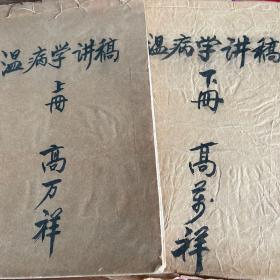 温病学讲稿
上册
高万祥
温病学讲稿
下册
高萬祥